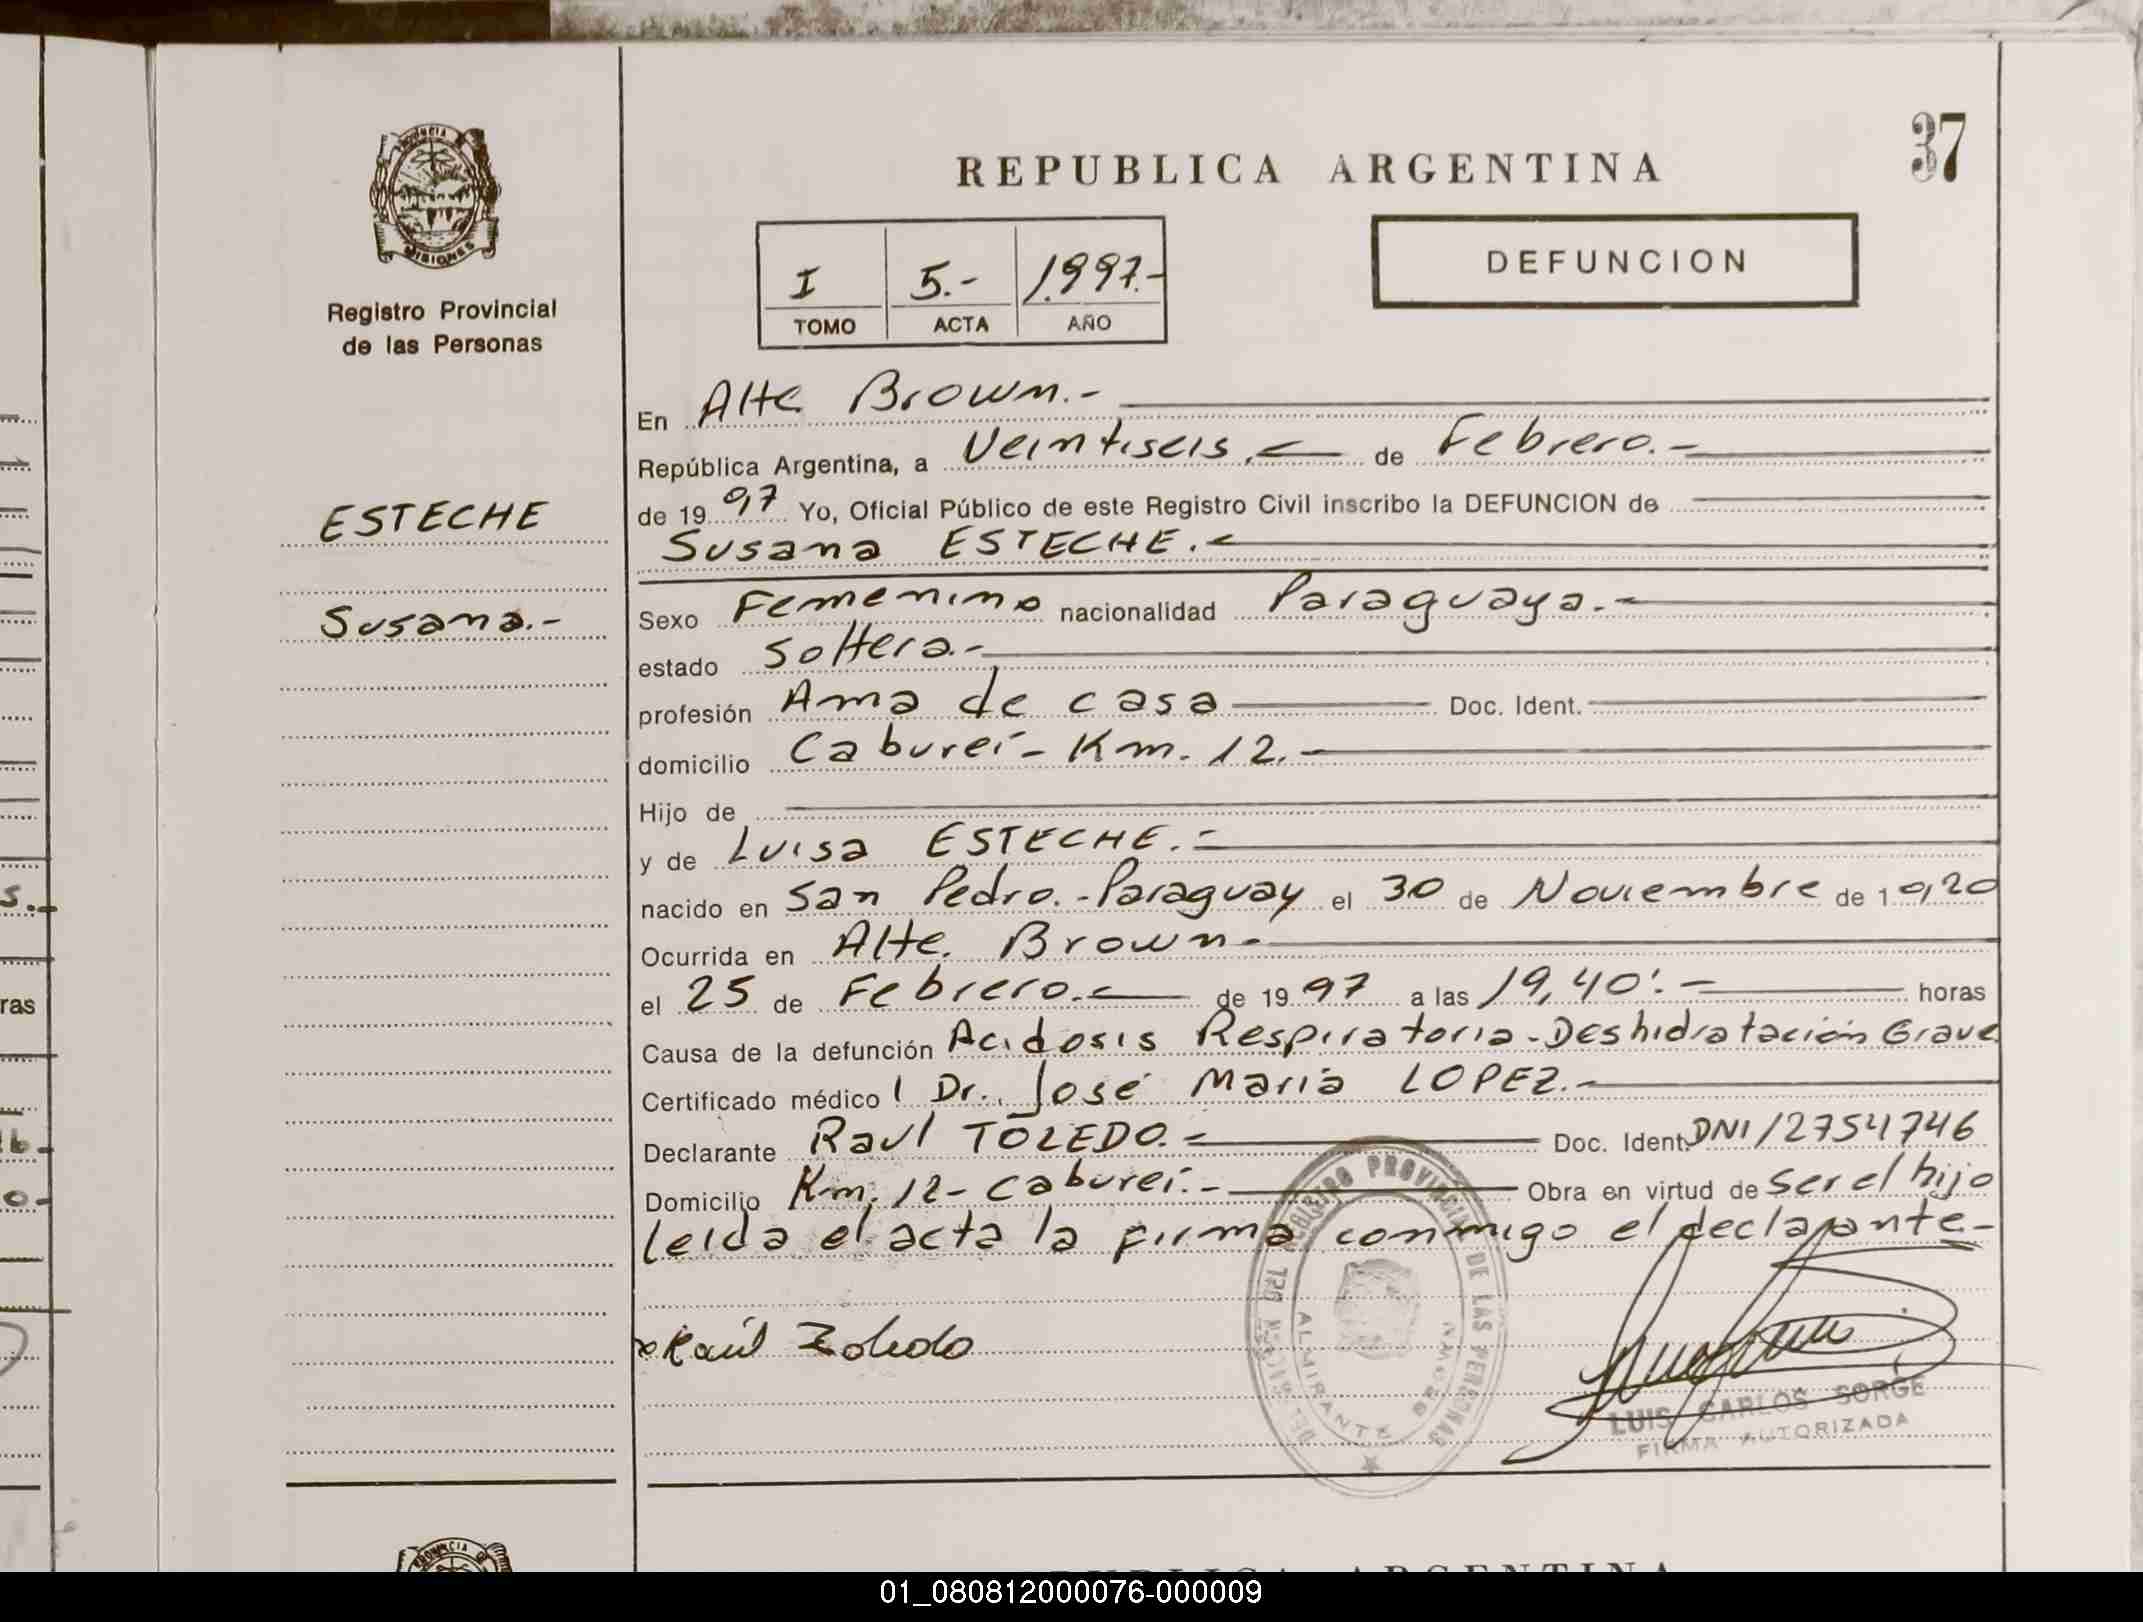 PROVINCIA
MISIONES
Registro Provincial
de las Personas
ESTECHE
Susana.-
37
REPUBLICA ARGENTINA
I 5.- 1.997.-
TOMO ACTA AÑO
DEFUNCION
En Alte Brown.-
República Argentina, a Veintiseis.- de Febrero.-
de 19 97 Yo, Oficial Público de este Registro Civil inscribo la DEFUNCION de
Susana ESTECHE.-
Sexo Femenino nacionalidad Paraguaya.-
estado Soltera.-
profesión Ama de casa Doc. Ident.
domicilio Cabureí- Km. 12.-
Hijo de
y de Luisa ESTECHE.-
nacido en San Pedro.-Paraguay el 30 de Noviembre de 1 920
Ocurrida en Alte. Brown-
el 25 de Febrero.- de 19 97 a las 19,40'.- horas
Causa de la defunción Acidosis Respiratoria-Deshidratación Grave
Certificado médico Dr. José María LOPEZ.-
Declarante Raul TOLEDO.- Doc. Ident. DNI/27541746
Domicilio Km. 12- Cabureí.- Obra en virtud de ser el hijo
leida el acta la firma conmigo el declarante-
Raúl Toledo
REGISTRO PROVINCIAL DE LAS PERSONAS
ALMIRANTE BROWN
LUIS CARLOS SORGE
FIRMA AUTORIZADA
PROVINCIA DE
REPUBLICA ARGENTINA
01_080812000076-000009